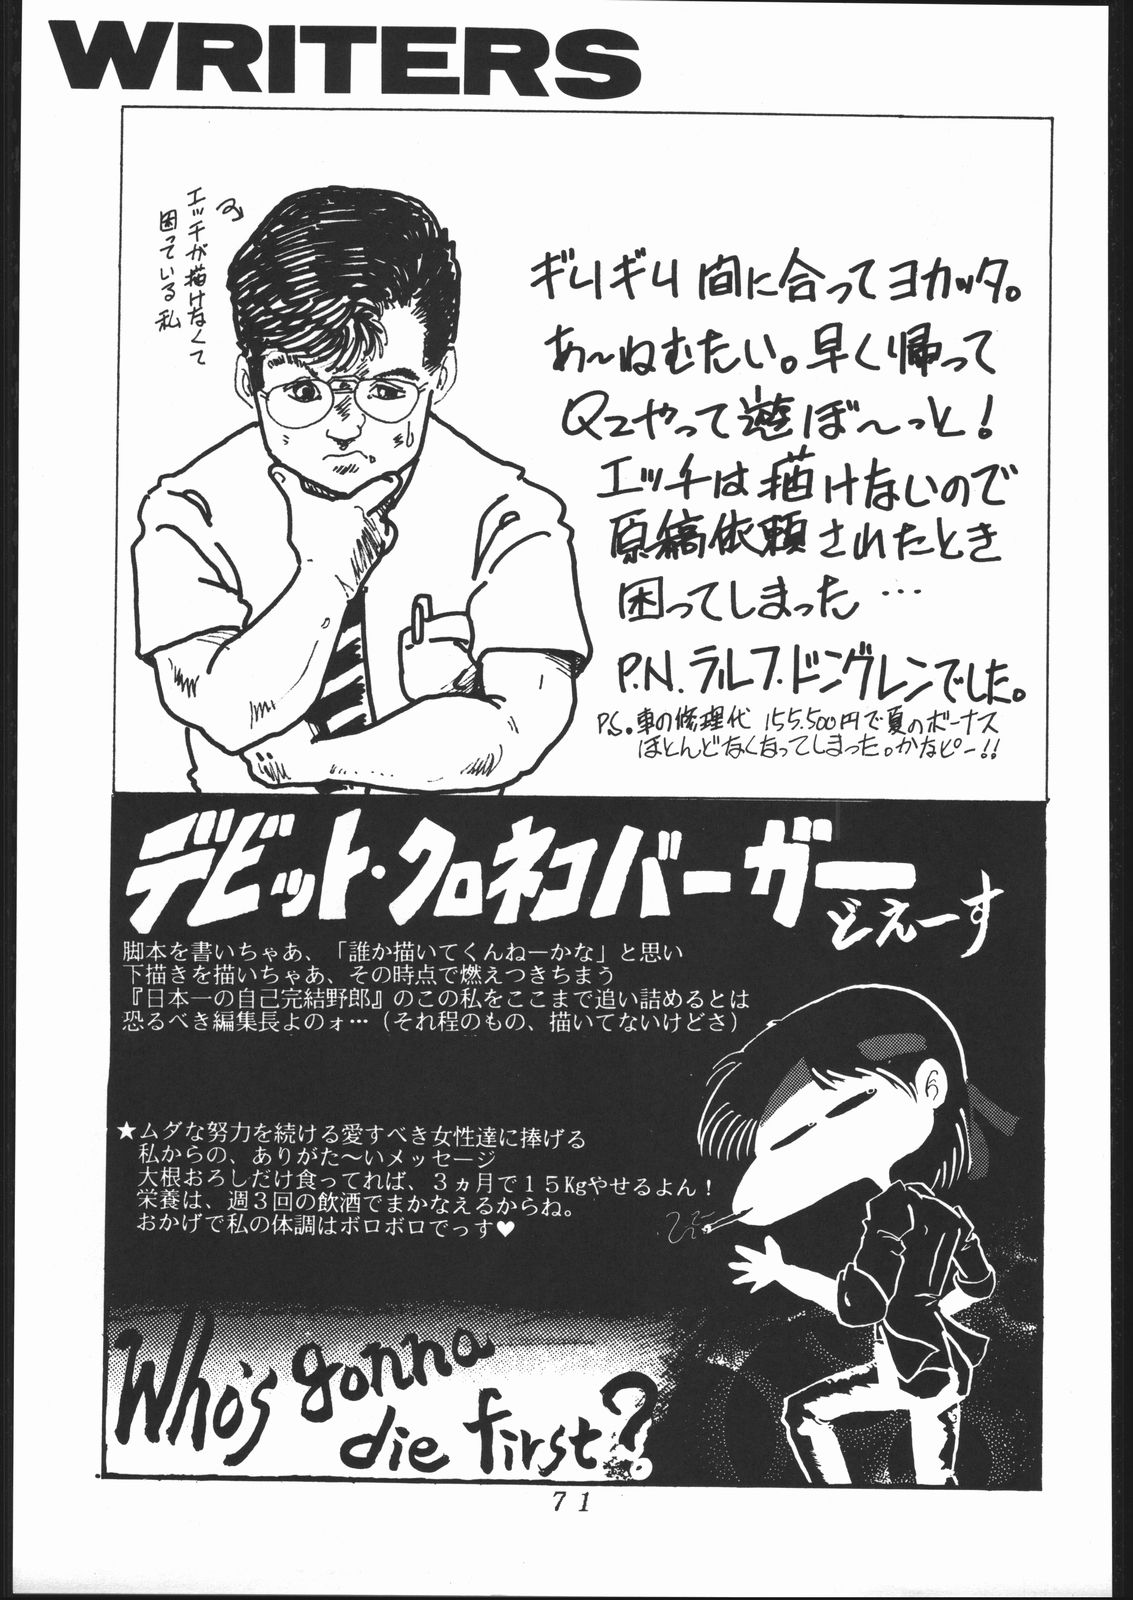 WRITERS
エッチが描けなくて
困っている私
ギリギリ間に合ってヨカッタ。
あ〜ねむたい。早く帰って
Q2やって遊ぼ〜っと！
エッチは描けないので
原稿依頼されたとき
困ってしまった…
P.N.ラルフ・ドングレンでした。
P.S.車の修理代 155.500円で夏のボーナス
ほとんどなくなってしまった。かなピー!!
デビット・クロネコバーガー
どぇーす
脚本を書いちゃあ、「誰か描いてくんねーかな」と思い
下描きを描いちゃあ、その時点で燃えつきちまう
『日本一の自己完結野郎』のこの私をここまで追い詰めるとは
恐るべき編集長よのォ…（それ程のもの、描いてないけどさ）
★ムダな努力を続ける愛すべき女性達に捧げる
私からの、ありがた〜いメッセージ
大根おろしだけ食ってれば、３ヵ月で１５Kgやせるよん！
栄養は、週３回の飲酒でまかなえるからね。
おかげで私の体調はボロボロでっす♥
Who's gonna
die first?
71